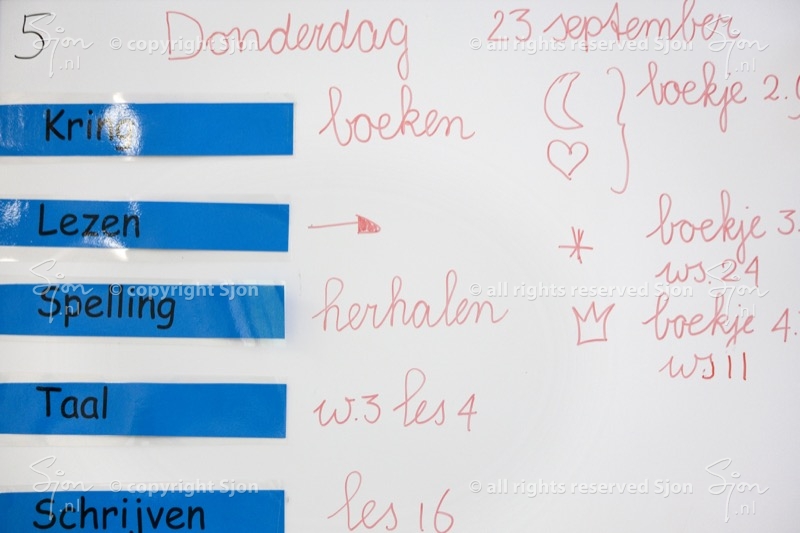 5 Donderdag 23 september
Kring boeken boekje 2.
Lezen boekje 3.
ws. 24
Spelling herhalen boekje 4.
ws 11
Taal w.3 les 4
Schrijven les 16
Sjon .nl
© copyright Sjon
© all rights reserved Sjon
Sjon .nl
Sjon .nl
© copyright Sjon
© all rights reserved Sjon
Sjon .nl
Sjon .nl
© copyright Sjon
© all rights reserved Sjon
Sjon .nl